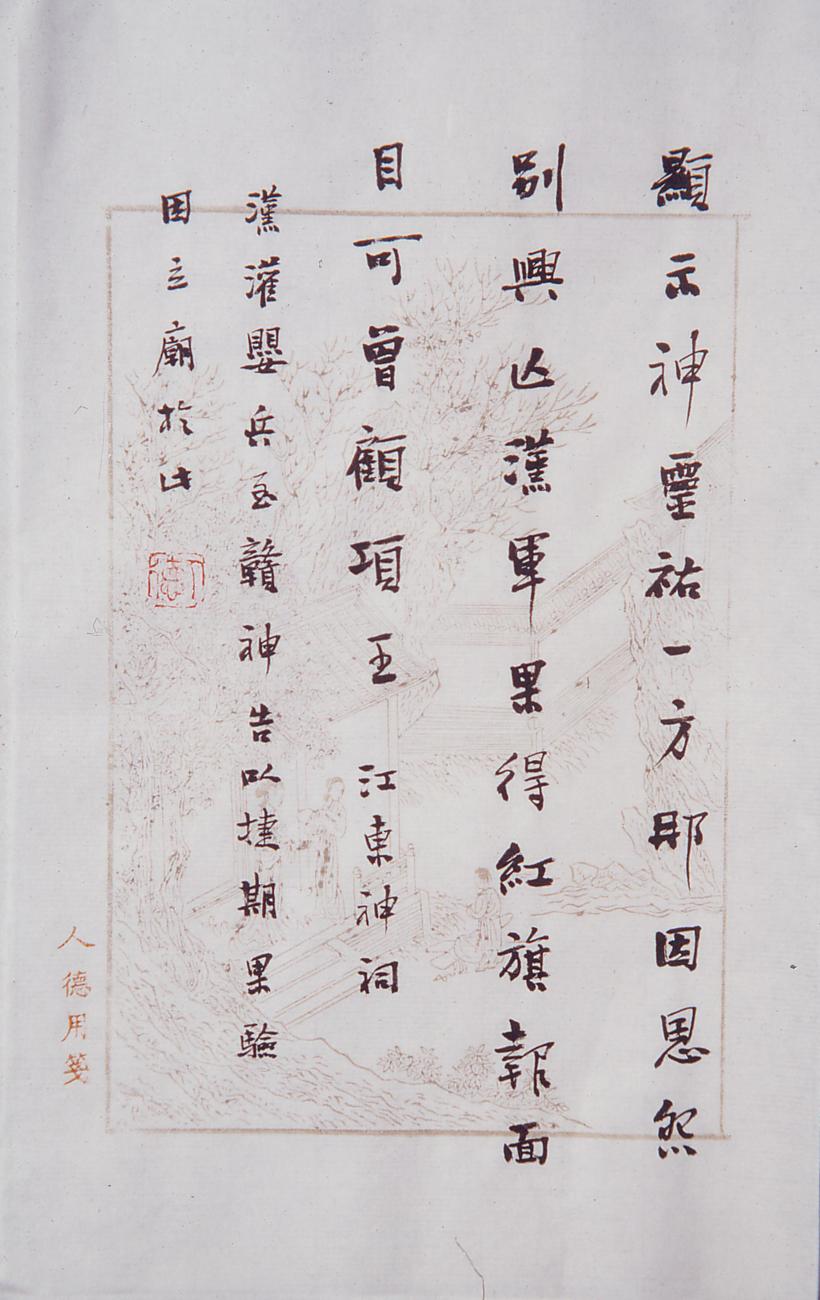 顯示神靈祐一方那因恩怨
別興亡漢軍果得紅旗報面
目可曾顧項王 江東神祠
漢灌嬰兵至贛神告以捷期果驗
因立廟於此
人德用箋